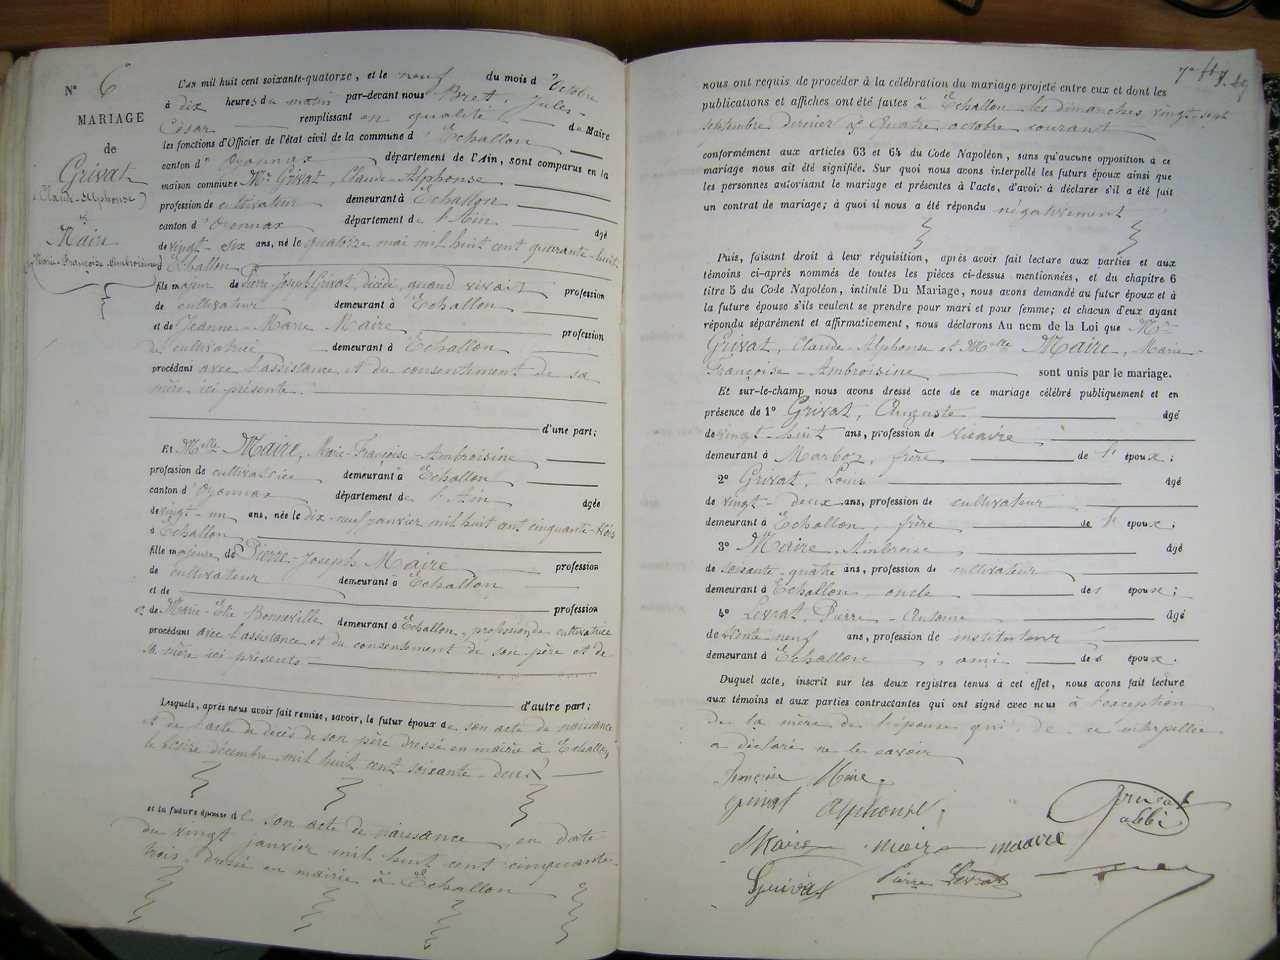 N° 6
MARIAGE
de
Grivat
(Claude-Alphonse)
&
Maire
(Marie-Françoise-Ambroisine)
L'an mil huit cent soixante-quatorze, et le neuf du mois d'Octobre
à dix heures du matin par-devant nous Bret, Jules-
César remplissant en qualité de Maire
les fonctions d'Officier de l'état civil de la commune d'Echallon
canton d'Oyonnax département de l'Ain, sont comparus en la
maison commune Mr Grivat, Claude-Alphonse
profession de cultivateur demeurant à Echallon
canton d'Oyonnax département de l'Ain âgé
de vingt-six ans, né le quatorze mai mil huit cent quarante-huit
à Echallon
fils majeur de Pierre-Joseph Grivat, décédé, quand vivait profession
de cultivateur demeurant à Echallon
et de Jeanne-Marie Maire profession
de cultivatrice demeurant à Echallon
procédant avec l'assistance et du consentement de sa
mère ici présente.
d'une part;
Et Mlle Maire, Marie-Françoise-Ambroisine
profession de cultivatrice demeurant à Echallon
canton d'Oyonnax département de l'Ain âgée
de vingt-un ans, née le dix-neuf janvier mil huit cent cinquante-trois
à Echallon
fille majeure de Pierre-Joseph Maire profession
de cultivateur demeurant à Echallon
et de profession
et de Marie-Elie Bonneville demeurant à Echallon, profession de cultivatrice
procédant avec l'assistance et du consentement de son père et de
sa mère ici présents
d'autre part;
Lesquels, après nous avoir fait remise, savoir, le futur époux de son acte de naissance
et de l'acte de décès de son père dressé en mairie à Echallon,
le seize décembre mil huit cent soixante-deux
et la future épouse de son acte de naissance, en date
du vingt janvier mil huit cent cinquante-
trois, dressé en mairie à Echallon
nous ont requis de procéder à la célébration du mariage projeté entre eux et dont les
publications et affiches ont été faites à Echallon les dimanches vingt-sept
septembre dernier & quatre octobre courant
conformément aux articles 63 et 64 du Code Napoléon, sans qu'aucune opposition à ce
mariage nous ait été signifiée. Sur quoi nous avons interpellé les futurs époux ainsi que
les personnes autorisant le mariage et présentes à l'acte, d'avoir à déclarer s'il a été fait
un contrat de mariage; à quoi il nous a été répondu négativement
Puis, faisant droit à leur réquisition, après avoir fait lecture aux parties et aux
témoins ci-après nommés de toutes les pièces ci-dessus mentionnées, et du chapitre 6
titre 5 du Code Napoléon, intitulé Du Mariage, nous avons demandé au futur époux et à
la future épouse s'ils veulent se prendre pour mari et pour femme; et chacun d'eux ayant
répondu séparément et affirmativement, nous déclarons Au nom de la Loi que Mr
Grivat, Claude-Alphonse et Mlle Maire, Marie-
Françoise-Ambroisine sont unis par le mariage.
Et sur-le-champ nous avons dressé acte de ce mariage célébré publiquement et en
présence de 1° Grivat, Auguste âgé
de vingt-huit ans, profession de vicaire
demeurant à Marboz, frère de l'époux;
2° Grivat, Louis âgé
de vingt-deux ans, profession de cultivateur
demeurant à Echallon, frère de l'époux;
3° Maire Ambroise âgé
de soixante-quatre ans, profession de cultivateur
demeurant à Echallon, oncle des époux;
4° Levrat, Pierre-Antoine âgé
de trente-neuf ans, profession de instituteur
demeurant à Echallon, ami des époux.
Duquel acte, inscrit sur les deux registres tenus à cet effet, nous avons fait lecture
aux témoins et aux parties contractantes qui ont signé avec nous à l'exception
de la mère de l'épouse qui, de ce interpellée
a déclaré ne le savoir
Maire
Grivat Alphonse
Grivat
abbé
Maire maire maire
Grivat Pierre Levrat